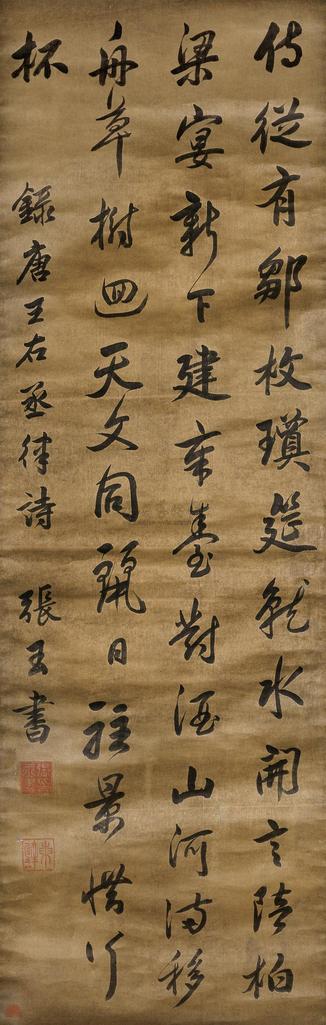 侍從有鄒枚瓊筵就水開言陪柏
梁宴新下建章臺對酒山河滿移
舟草樹迴天文同麗日駐景惜行
杯
錄唐王右丞律詩 張玉書